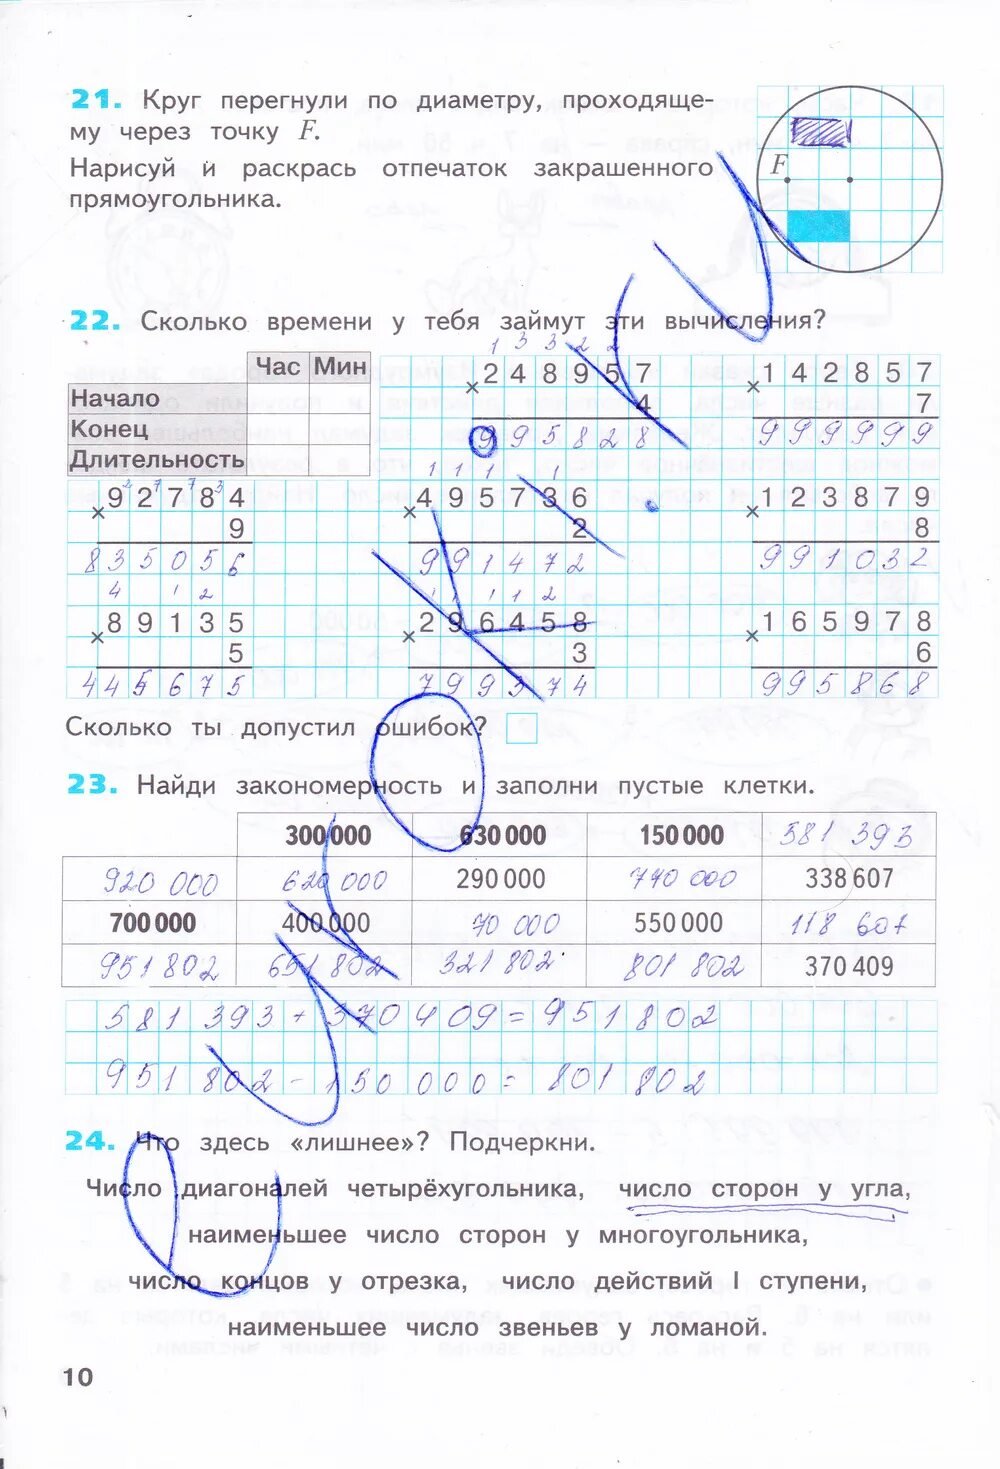 21. Круг перегнули по диаметру, проходяще-
му через точку F.
Нарисуй и раскрась отпечаток закрашенного
прямоугольника.
F
22. Сколько времени у тебя займут эти вычисления?
Час Мин
Начало
Конец
Длительность
1 3 3 2 2
× 248957
4
995828
× 142857
7
999999
2 7 7 3
× 92784
9
835056
1 1 1 1
× 495736
2
991472
× 123879
8
991032
4 1 2
× 89135
5
445675
1 1 1 2
× 296458
3
799374
× 165978
6
995868
Сколько ты допустил ошибок?
23. Найди закономерность и заполни пустые клетки.
300 000 630 000 150 000 581 393
920 000 620 000 290 000 770 000 338 607
700 000 400 000 70 000 550 000 118 607
951 802 651 802 321 802 801 802 370 409
581 393 + 370 409 = 951 802
951 802 - 150 000 = 801 802
24. Что здесь «лишнее»? Подчеркни.
Число диагоналей четырёхугольника, число сторон у угла,
наименьшее число сторон у многоугольника,
число концов у отрезка, число действий I ступени,
наименьшее число звеньев у ломаной.
10